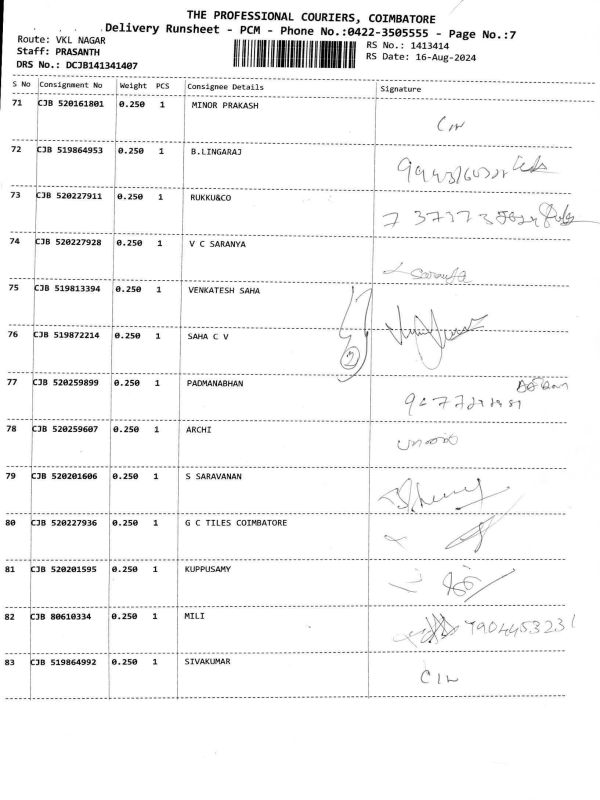 THE PROFESSIONAL COURIERS, COIMBATORE
Delivery Runsheet - PCM - Phone No.:0422-3505555 - Page No.:7
Route: VKL NAGAR
RS No.: 1413414
Staff: PRASANTH
RS Date: 16-Aug-2024
DRS No.: DCJB141341407
S No Consignment No Weight PCS Consignee Details Signature
71 CJB 520161801 0.250 1 MINOR PRAKASH
72 CJB 519864953 0.250 1 B.LINGARAJ
73 CJB 520227911 0.250 1 RUKKU&CO
74 CJB 520227928 0.250 1 V C SARANYA
75 CJB 519813394 0.250 1 VENKATESH SAHA
76 CJB 519872214 0.250 1 SAHA C V
77 CJB 520259899 0.250 1 PADMANABHAN
78 CJB 520259607 0.250 1 ARCHI
79 CJB 520201606 0.250 1 S SARAVANAN
80 CJB 520227936 0.250 1 G C TILES COIMBATORE
81 CJB 520201595 0.250 1 KUPPUSAMY
82 CJB 80610334 0.250 1 MILI 7904453231
83 CJB 519864992 0.250 1 SIVAKUMAR